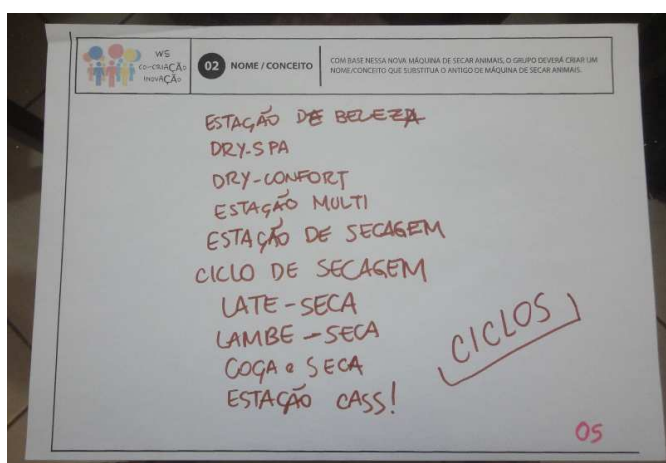 WS
CO-CRIAÇÃO
INOVAÇÃO
02 NOME / CONCEITO
COM BASE NESSA NOVA MÁQUINA DE SECAR ANIMAIS, O GRUPO DEVERÁ CRIAR UM
NOME/CONCEITO QUE SUBSTITUA O ANTIGO DE MÁQUINA DE SECAR ANIMAIS.
ESTAÇÃO DE BELEZA
DRY-SPA
DRY-CONFORT
ESTAÇÃO MULTI
ESTAÇÃO DE SECAGEM
CICLO DE SECAGEM
LATE-SECA
LAMBE-SECA
COÇA e SECA
ESTAÇÃO CASS!
CICLOS
05